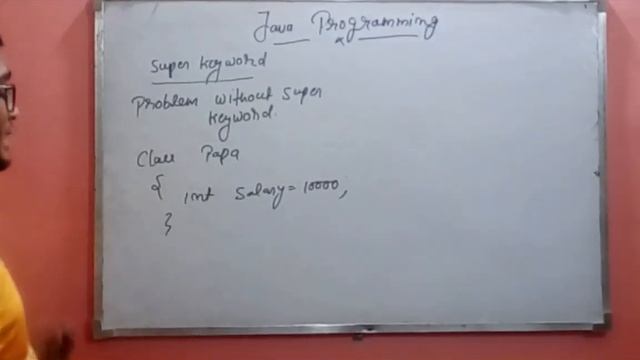 Java Programming
Super Keyword
Problem without Super
Keyword.
Class Papa
{
int Salary=10000;
}